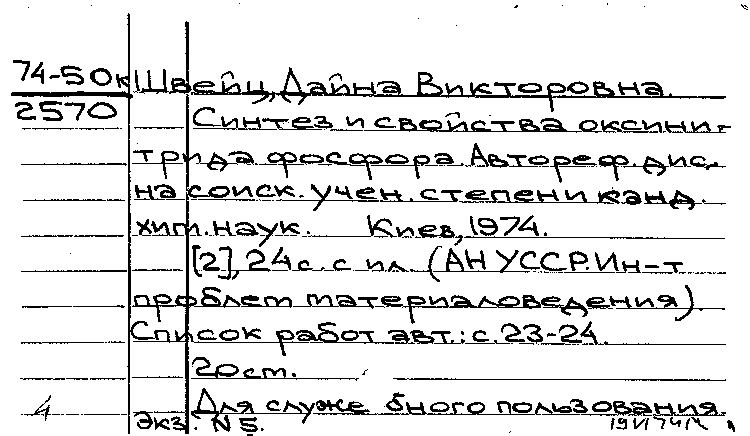 74-50к Швейц, Дайна Викторовна.
2570 Синтез и свойства оксини-
трида фосфора. Автореф. дис.
на соиск. учен. степени канд.
хим. наук. Киев, 1974.
[2], 24 с. с ил. (АН УССР. Ин-т
проблем материаловедения).
Список работ авт.: с. 23-24.
20 ст.
Для служебного пользования.
4 экз. N 5.